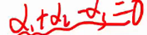 α₁+α₂-α₃=0